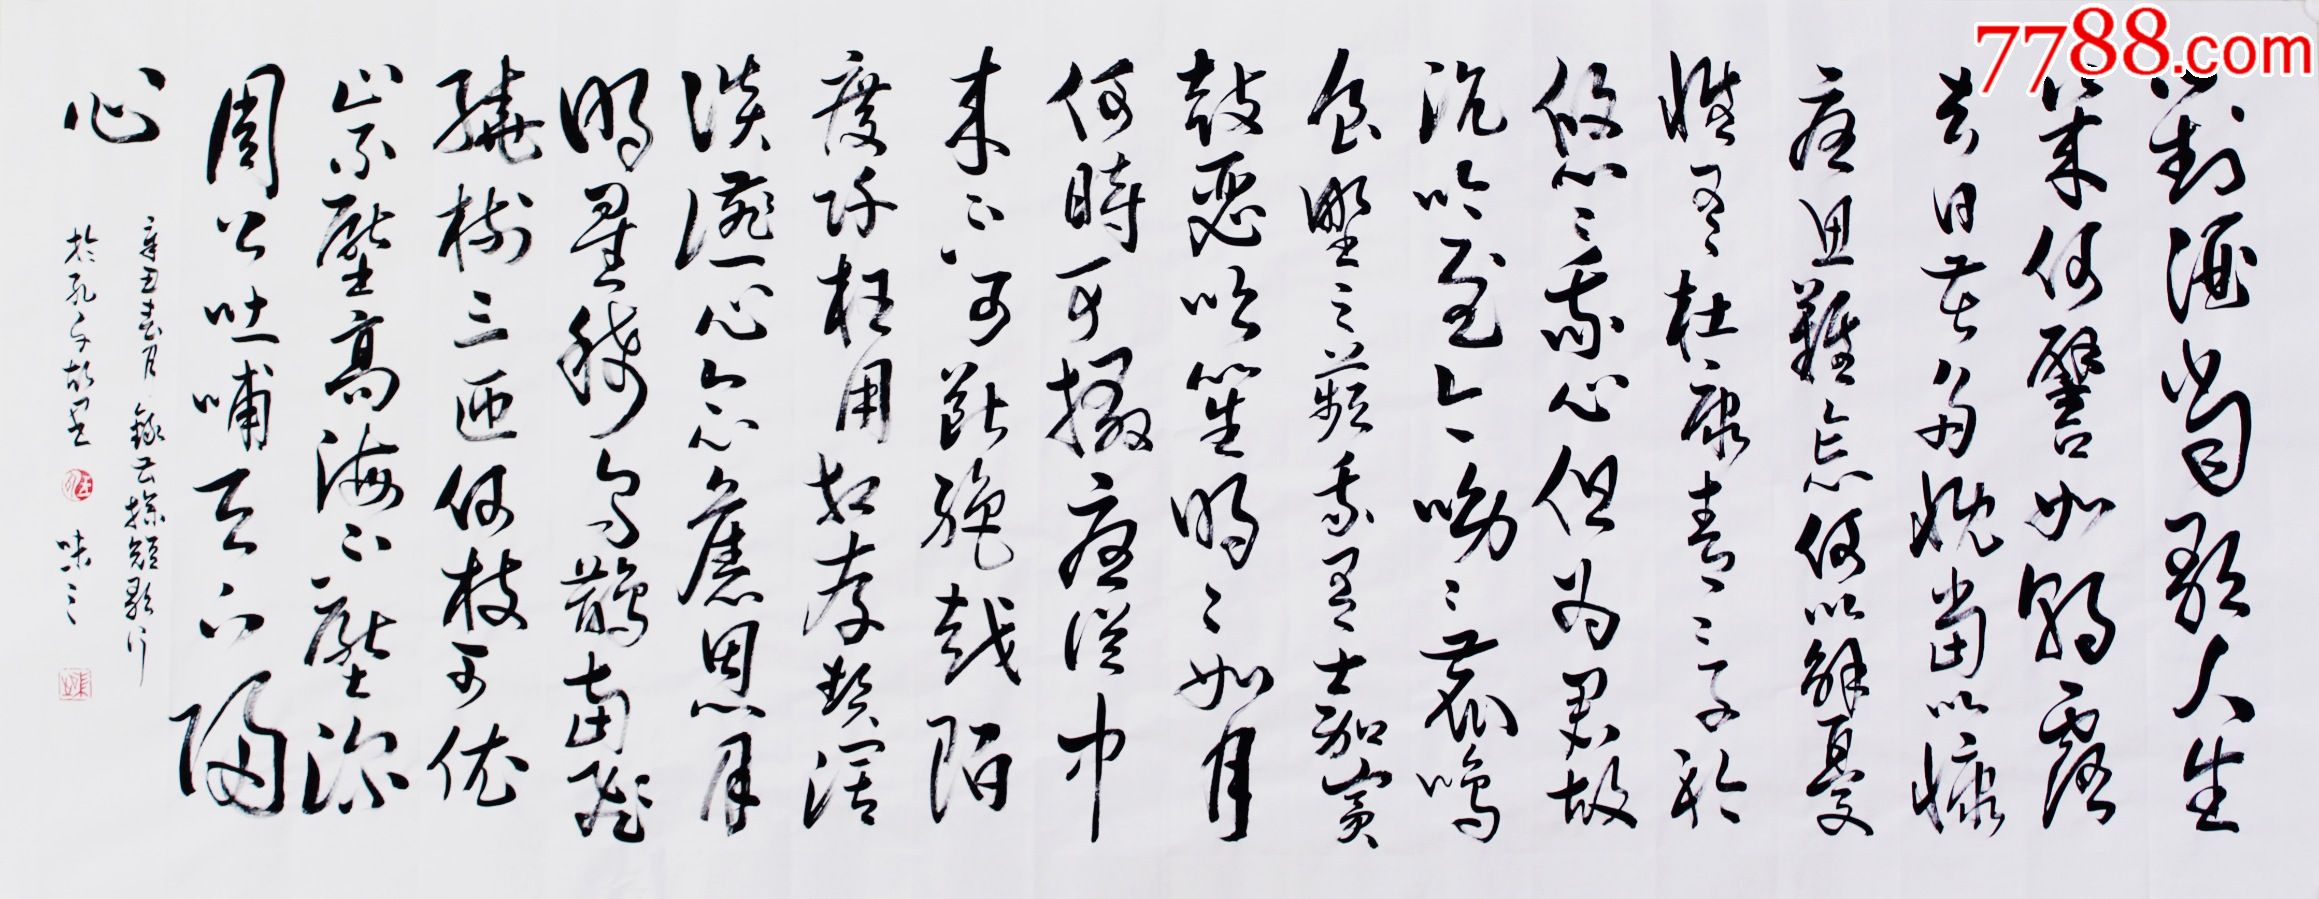 對酒當歌人生
幾何譬如朝露
去日苦多慨當以慷
憂思難忘何以解憂
惟有杜康青〻子衿
悠〻我心但為君故
沉吟至今呦〻鹿鳴
食野之蘋我有嘉賓
鼓瑟吹笙明〻如月
何時可掇憂從中
來不可斷絕越陌
度阡枉用相存契闊
談讌心念舊恩月
明星稀烏鵲南飛
繞樹三匝何枝可依
山不厭高海不厭深
周公吐哺天下歸
心
辛丑春月錄曹操短歌行
於孔子故里 味之
7788.com